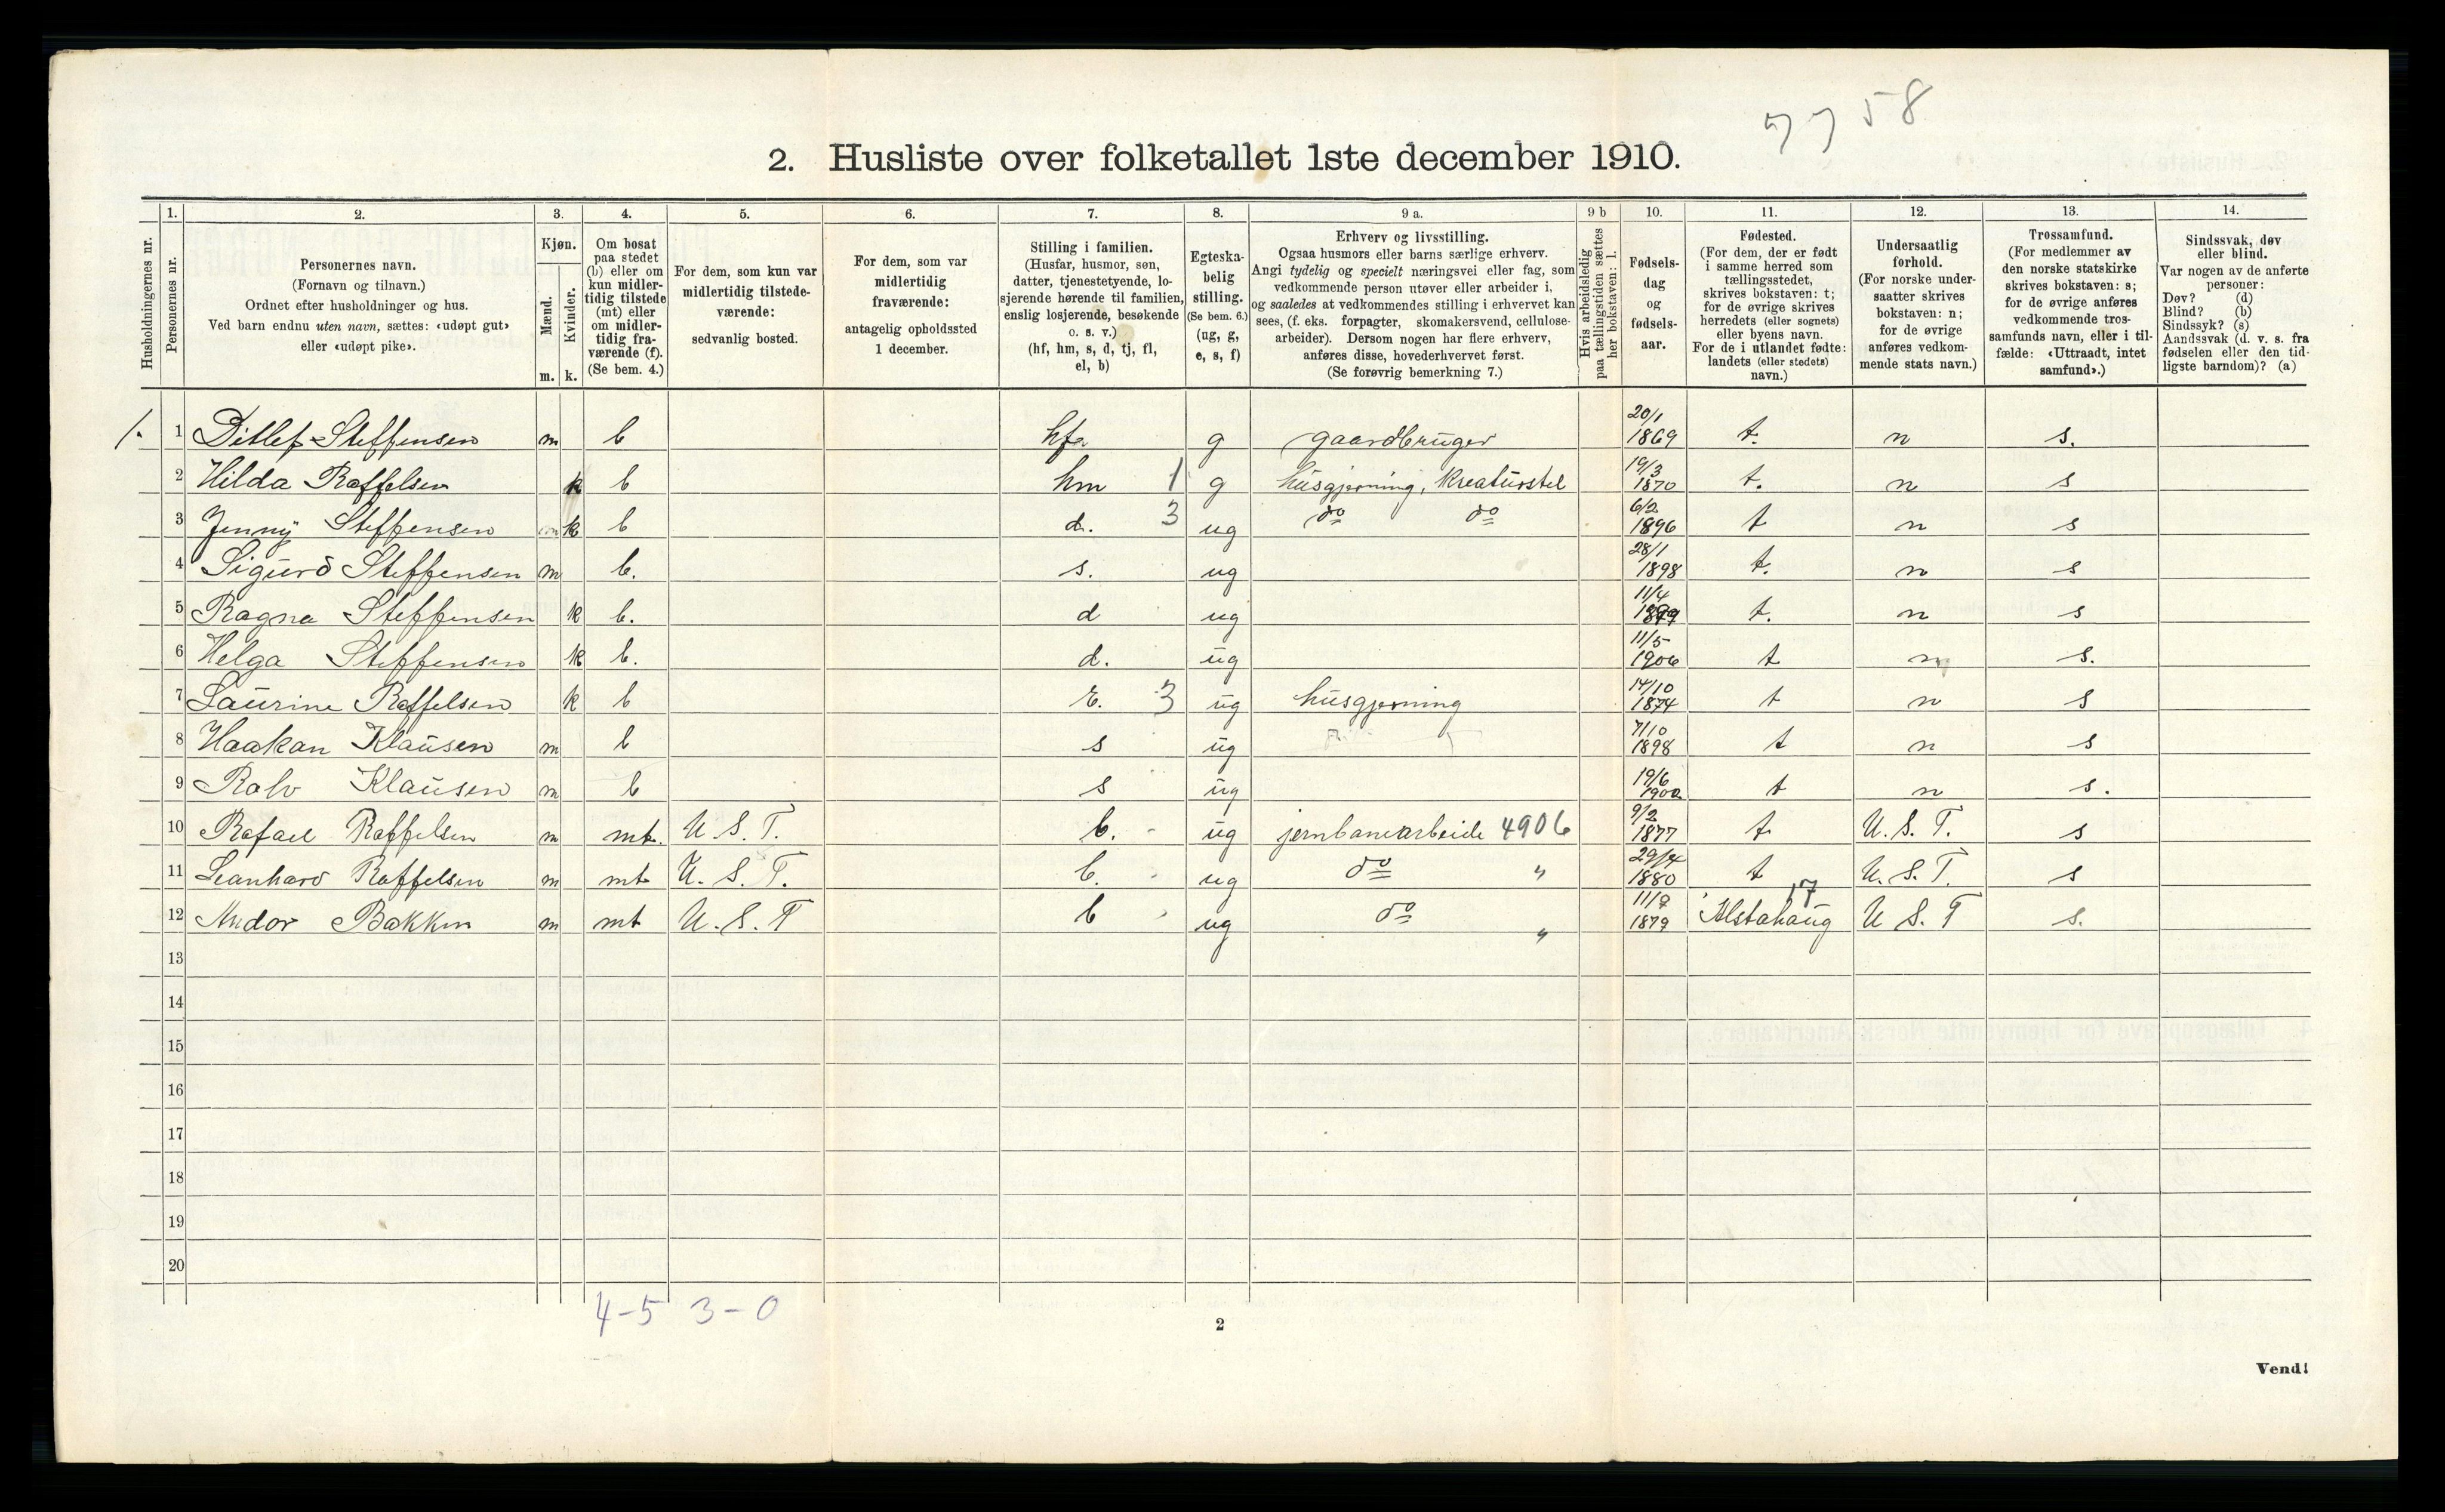 7758
2. Husliste over folketallet 1ste december 1910.
Husholdningernes nr.
1.
Personernes nr.
2.
Personernes navn.
(Fornavn og tilnavn.)
Ordnet efter husholdninger og hus.
Ved barn endnu uten navn, sættes: «udøpt gut»
eller «udøpt pike».
3.
Kjøn.
Mænd.
Kvinder.
m. k.
4.
Om bosat
paa stedet
(b) eller om
kun midler-
tidig tilstede
(mt) eller
om midler-
tidig fra-
værende (f).
(Se bem. 4.)
5.
For dem, som kun var
midlertidig tilstede-
værende:
sedvanlig bosted.
6.
For dem, som var
midlertidig
fraværende:
antagelig opholdssted
1 december.
7.
Stilling i familien.
(Husfar, husmor, søn,
datter, tjenestetyende, lo-
sjerende hørende til familien,
enslig losjerende, besøkende
o. s. v.)
(hf, hm, s, d, tj, fl,
el, b)
8.
Egteska-
belig
stilling.
(Se bem. 6.)
(ug, g,
e, s, f)
9 a.
Erhverv og livsstilling.
Ogsaa husmors eller barns særlige erhverv.
Angi tydelig og specielt næringsvei eller fag, som
vedkommende person utøver eller arbeider i,
og saaledes at vedkommendes stilling i erhvervet kan
sees, (f. eks. forpagter, skomakersvend, cellulose-
arbeider). Dersom nogen har flere erhverv,
anføres disse, hovederhvervet først.
(Se forøvrig bemerkning 7.)
9 b
Hvis arbeidsledig
paa tællingstiden sættes
her bokstaven: l.
10.
Fødsels-
dag
og
fødsels-
aar.
11.
Fødested.
(For dem, der er født
i samme herred som
tællingsstedet,
skrives bokstaven: t;
for de øvrige skrives
herredets (eller sognets)
eller byens navn.
For de i utlandet fødte:
landets (eller stedets)
navn.)
12.
Undersaatlig
forhold.
(For norske under-
saatter skrives
bokstaven: n;
for de øvrige
anføres vedkom-
mende stats navn.)
13.
Trossamfund.
(For medlemmer av
den norske statskirke
skrives bokstaven: s;
for de øvrige anføres
vedkommende tros-
samfunds navn, eller i til-
fælde: «Uttraadt, intet
samfund».)
14.
Sindssvak, døv
eller blind.
Var nogen av de anførte
personer:
Døv? (d)
Blind? (b)
Sindssyk? (s)
Aandssvak (d. v. s. fra
fødselen eller den tid-
ligste barndom)? (a)
1. 1 Ditlef Steffensen m b hf. g gaardbruger 20/1 1869 t. n s.
2 Hilda Raffelsen k b hm 1 g husgjerning, Kreaturstel 19/3 1870 t. n s
3 Jenny Steffensen k b d. 3 ug do do 6/2 1896 t n s
4 Sigurd Steffensen m b. s. ug 28/1 1898 t. n s
5 Ragna Steffensen k b. d ug 11/4 1899 t. n s
6 Helga Steffensen k b. d. ug 11/5 1906 t n s.
7 Laurine Raffelsen k b 3 ug husgjerning 14/10 1874 t n s
8 Haakan Klausen m b s ug 7/10 1898 t n s
9 Ralv Klausen m b s ug 19/6 1900 t n s.
10 Rafael Raffelsen m mt. U. S. T. b. ug jernbanearbeide 4906 9/2 1877 t U. S. T. s
11 Leanhard Raffelsen m mt U. S. T. b. ug do " 29/4 1880 t U. S. T. s
12 Andor Bakken m mt U. S. T b ug do " 1879 Alstahaug 17 U S. T s.
13
14
15
16
17
18
19
20
4-5 3-0
2
Vend!